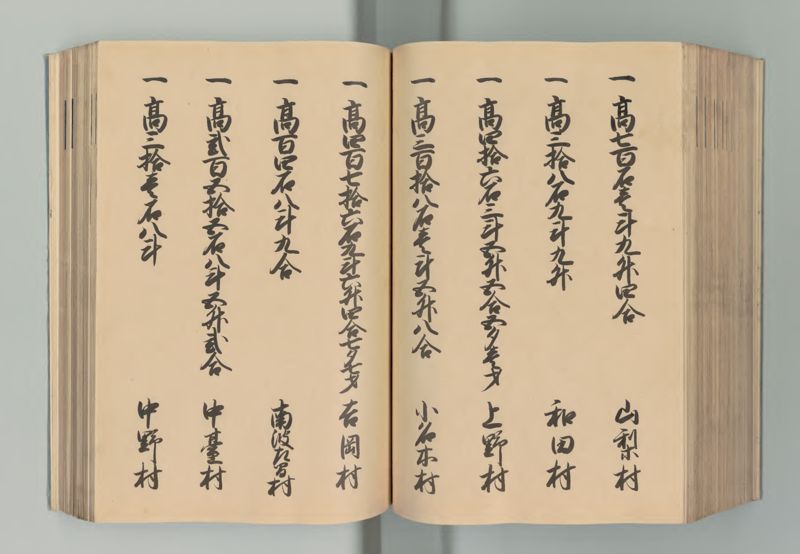 一 高七百石壱斗九升四合 山梨村
一 高三拾八石九斗九升 和田村
一 高四拾六石三斗五升五合五夕壱才 上野村
一 高三百拾八石壱斗五升八合 小名木村
一 高四百七拾六石九斗六升四合七夕七才 吉岡村
一 高百四石八斗九合 南波佐間村
一 高弐百五拾五石八斗五升弐合 中臺村
一 高三拾壱石八斗 中野村